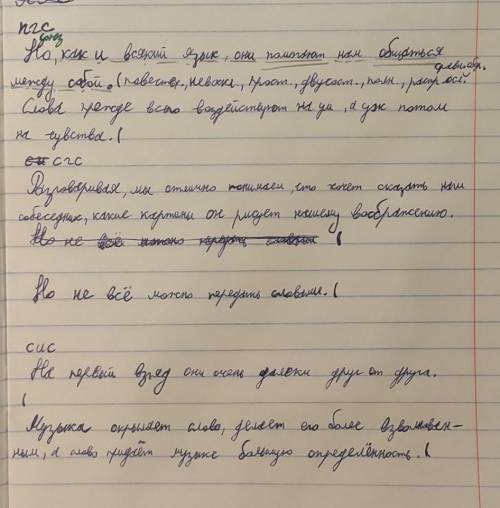 ПГС
союз
Но, как и всякий язык, они помогают нам общаться
между собой. (повеств., невоскл., прост., двусост., полн., распр.
Слова прежде всего воздействуют на ум, а уж потом
на чувства. (
СГС
Разговаривая, мы отлично понимаем, что хочет сказать наш
собеседник, какие картины он рисует нашему воображению.
Но не всё можно передать словами (
Но не всё можно передать словами. (
СИС
На первый взгяд они очень далеки друг от друга.
(
Музыка окрыляет слово, делает его более взволнован-
ным, а слово придаёт музыке большую определённость. (